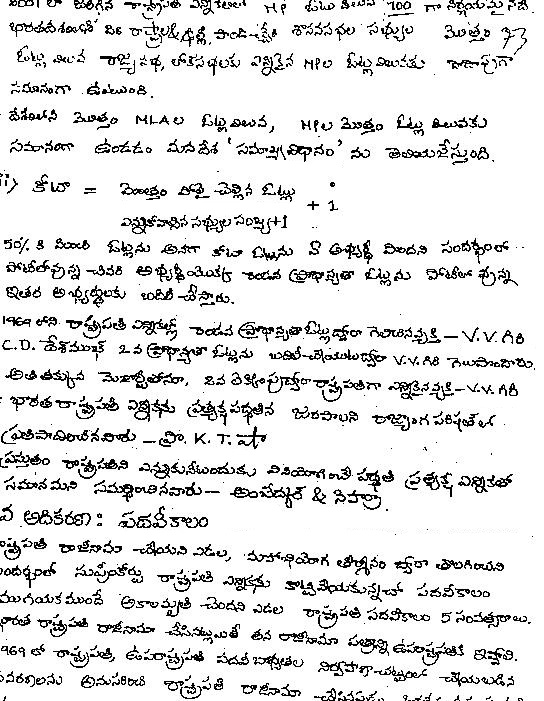 జరిగిన రాష్ట్రపతి ఎన్నికలలో MP ఓటు విలువ 700 గా నిర్ణయమైనది
భారతదేశంలో రాష్ట్రాల శాసనసభల సభ్యుల మొత్తం
ఓట్ల విలువ రాజ్యసభ, లోక్‌సభలకు ఎన్నికైన MPల ఓట్ల విలువకు
సమానంగా ఉంటుంది.
దేశంలోని మొత్తం MLAల ఓట్ల విలువ, MPల మొత్తం ఓట్ల విలువకు
సమానంగా ఉండడం మన దేశ 'సమాఖ్య విధానం' ను తెలియజేస్తుంది.
ii) కోటా = మొత్తం పోలై చెల్లిన ఓట్లు
+ 1
ఎన్నుకోవాల్సిన సభ్యుల సంఖ్య+1
50% కి మించి ఓట్లను అనగా కోటా ఓట్లను ఏ అభ్యర్థి పొందని సందర్భంలో
పోటీలోవున్న చివరి అభ్యర్థి యొక్క రెండవ ప్రాధాన్యతా ఓట్లను పోటీలో వున్న
ఇతర అభ్యర్థులకు బదిలీ చేస్తారు.
1969 లోని రాష్ట్రపతి ఎన్నికల్లో రెండవ ప్రాధాన్యతా ఓట్ల ద్వారా గెలిచిన వ్యక్తి – V.V.గిరి
C.D. దేశ్‌ముఖ్ 2వ ప్రాధాన్యతా ఓట్లను బదిలీ చేయుట ద్వారా V.V.గిరి గెలుపొందారు.
అతి తక్కువ మెజార్టీతోనూ, 2వ లెక్కింపు ద్వారా రాష్ట్రపతిగా ఎన్నికైన వ్యక్తి – V.V.గిరి
భారత రాష్ట్రపతి ఎన్నికను ప్రత్యక్ష పద్ధతిన జరపాలని రాజ్యాంగ పరిషత్‌లో
ప్రతిపాదించినవారు – ప్రొ. K.T. షా
ప్రస్తుతం రాష్ట్రపతిని ఎన్నుకునేటందుకు వినియోగించే పద్ధతి ప్రత్యక్ష ఎన్నికతో
సమానమని సమర్థించినవారు – అంబేద్కర్ & నెహ్రూ
వ అధికరణ: పదవీకాలం
రాష్ట్రపతి రాజీనామా చేయని ఎడల, మహాభియోగ తీర్మానం ద్వారా తొలగించని
సందర్భంలో సుప్రీంకోర్టు రాష్ట్రపతి ఎన్నికను కొట్టివేయకున్నచో పదవీకాలం
ముగియకముందే అకాలమృతి చెందని ఎడల రాష్ట్రపతి పదవీకాలం 5 సంవత్సరాలు.
భారత రాష్ట్రపతి రాజీనామా చేసినట్లయితే తన రాజీనామా పత్రాన్ని ఉపరాష్ట్రపతికి ఇవ్వాలి.
1969 లో రాష్ట్రపతి, ఉపరాష్ట్రపతి పదవీ బాధ్యతల నిర్వహణా చట్టంలో చేయబడిన
సవరణలను అనుసరించి రాష్ట్రపతి రాజీనామా